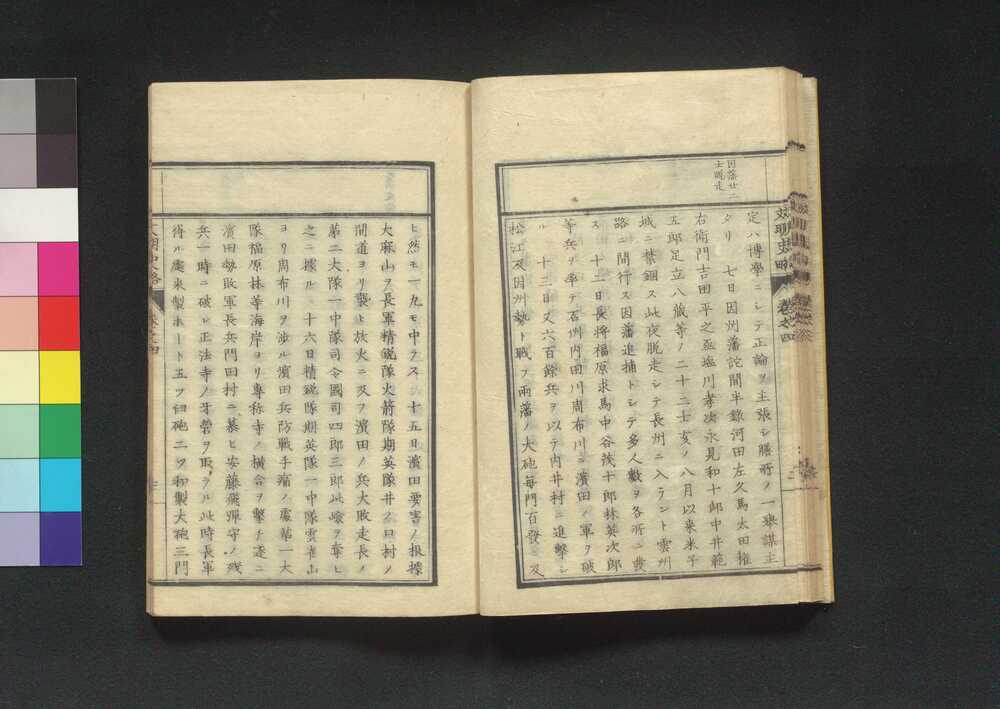 因藩廿二
士脱走
定ハ博學ニシテ正論ヲ主張シ膳所ノ一
謀主
タリ 七日因州藩詫間半錄河田左久馬太田權
右衛門吉田平之丞塩川孝次永見和十郎中井範
五郎足立八藏等ノ二十二士亥ノ八月以来米子
城ニ禁錮ス此夜脱走シテ長州ニ入ラント雲州
路ニ間行ス因藩追捕トシテ多人數ヲ各所ニ發
ス 十二日長將福原求馬中谷茂十郎林英次郎
等兵ヲ率テ石州内田川周布川ニ濱田ノ軍ヲ破
ル 十三日又六百餘兵ヲ以テ内井村ニ進擊シ
松江及因州勢ト戰フ兩藩ノ大砲每門百發ニ及
卷之四
ヒ然モ一丸モ中ラス 十五日濱田要害ノ根據
大麻山ヲ長軍精鋭隊火箭隊期英隊井ノ口村ノ
間道ヨリ襲ヒ放火ニ及フ濱田ノ兵大敗走長ノ
第二大隊一中隊司令國司四郎三郎此嶮ヲ奪ヒ
之ニ據ル 十六日精鋭隊期英隊一中隊雲雀山
ヨリ周布川ヲ渉ル濱田兵防戰手痛ノ處第一大
隊福原林等海岸ヨリ專称寺ノ横合ヲ擊チ遂ニ
濱田勢敗軍長兵門田村ニ慕ヒ安藤飛彈守ノ残
兵一時ニ破レ正法寺ノ牙營ヲ取ラル此時長軍
得ル處來製ホート五ツ臼砲二ツ和製大砲三門